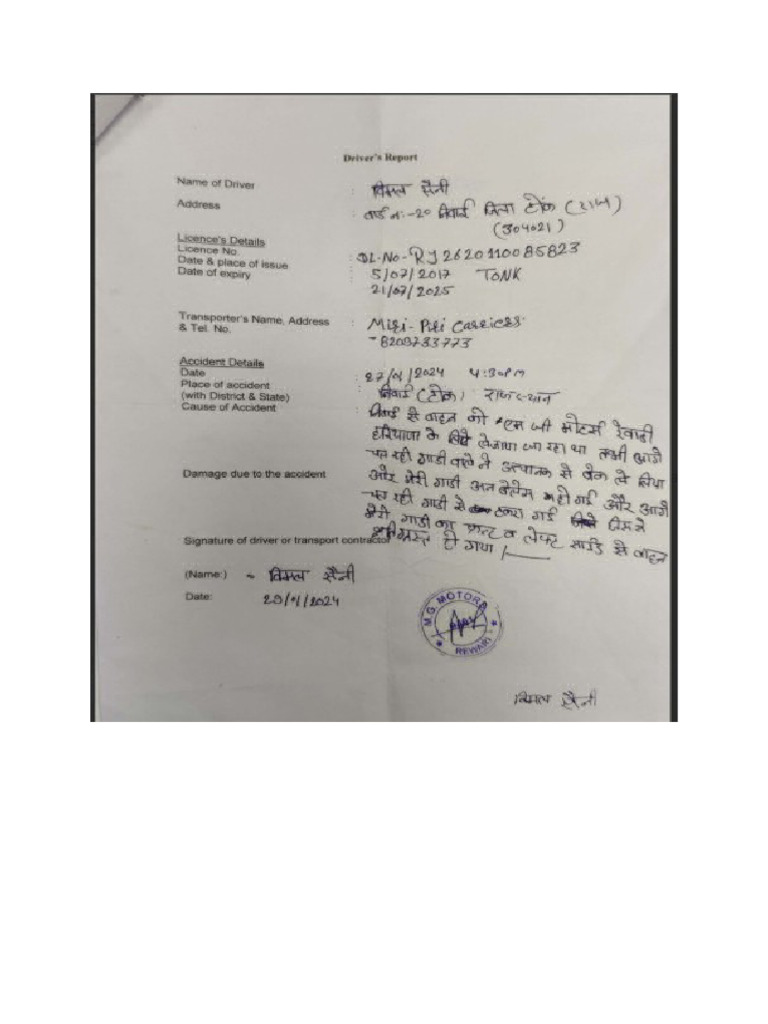 Driver's Report
Name of Driver : विमल सैनी
Address : वार्ड नः-20 निवाई जिला टोंक (राज)
(304021)
Licence's Details
Licence No. : DL-No-RJ2620110085823
Date & place of issue : 5/07/2017 TONK
Date of expiry 21/07/2025
Transporter's Name, Address : 
& Tel. No. -8209783773
Accident Details
Date : 27/9/2024 4:30PM
Place of accident : निवाई (टोंक) राजस्थान
(with District & State)
Cause of Accident : निवाई से वाहन को एम जी मोटर्स रेवाड़ी
हरियाणा के लिये लेजाया जा रहा था तभी आगे
चल रही गाडी वाले ने अचानक से ब्रेक ले लिया
Damage due to the accident और मेरी गाडी अन बेलेंस हो गई और आगे
चल रही गाडी से टकरा गई जिससे
मेरी गाडी का फ्रन्ट व लेफ्ट साईड से वाहन
Signature of driver or transport contractor क्षतिग्रस्त हो गया।
(Name:) - विमल सैनी
Date: 29/9/2024
M.G. MOTORS
REWARI
विमल सैनी